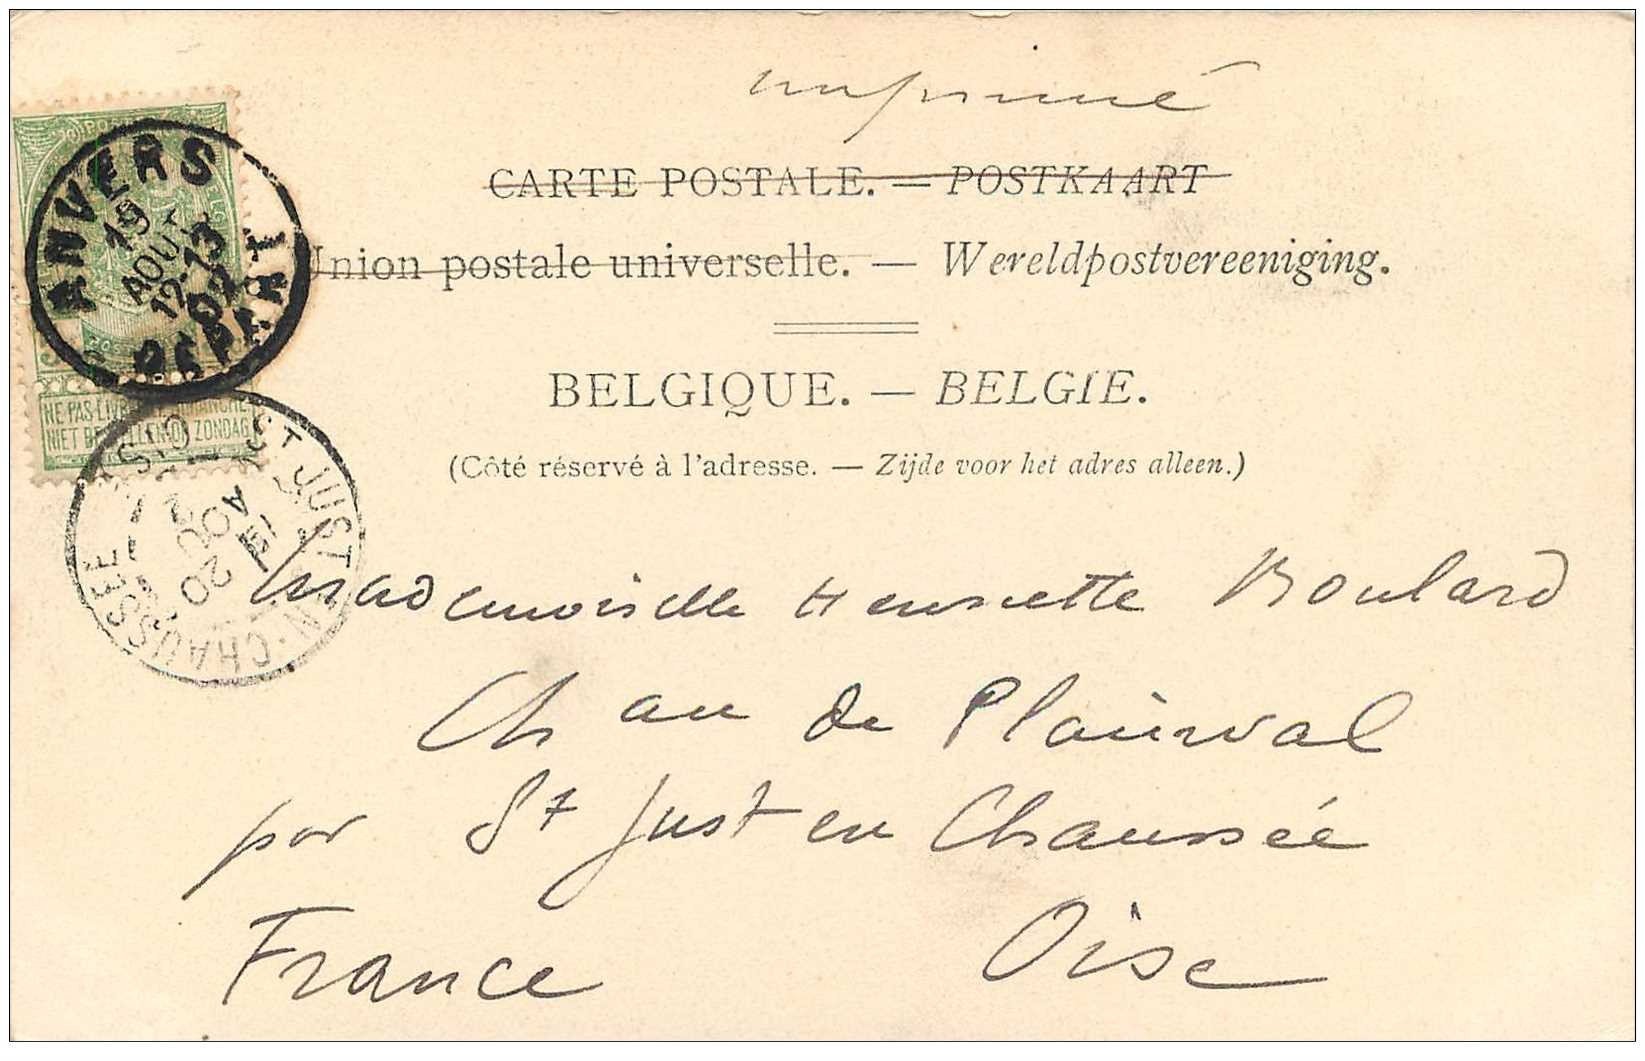 imprimé
CARTE POSTALE. — POSTKAART
Union postale universelle. — Wereldpostvereeniging.
BELGIQUE. — BELGIE.
(Côté réservé à l'adresse. — Zijde voor het adres alleen.)
ANVERS
19
AOUT
12-13
02
DEPART
NE PAS LIVRER LE DIMANCHE
NIET BESTELLEN OP ZONDAG
ST JUST EN CHAUSSÉE
20
AOU
Mademoiselle Henriette Boulard
Chau de Plainval
par St Just en Chaussée
France Oise